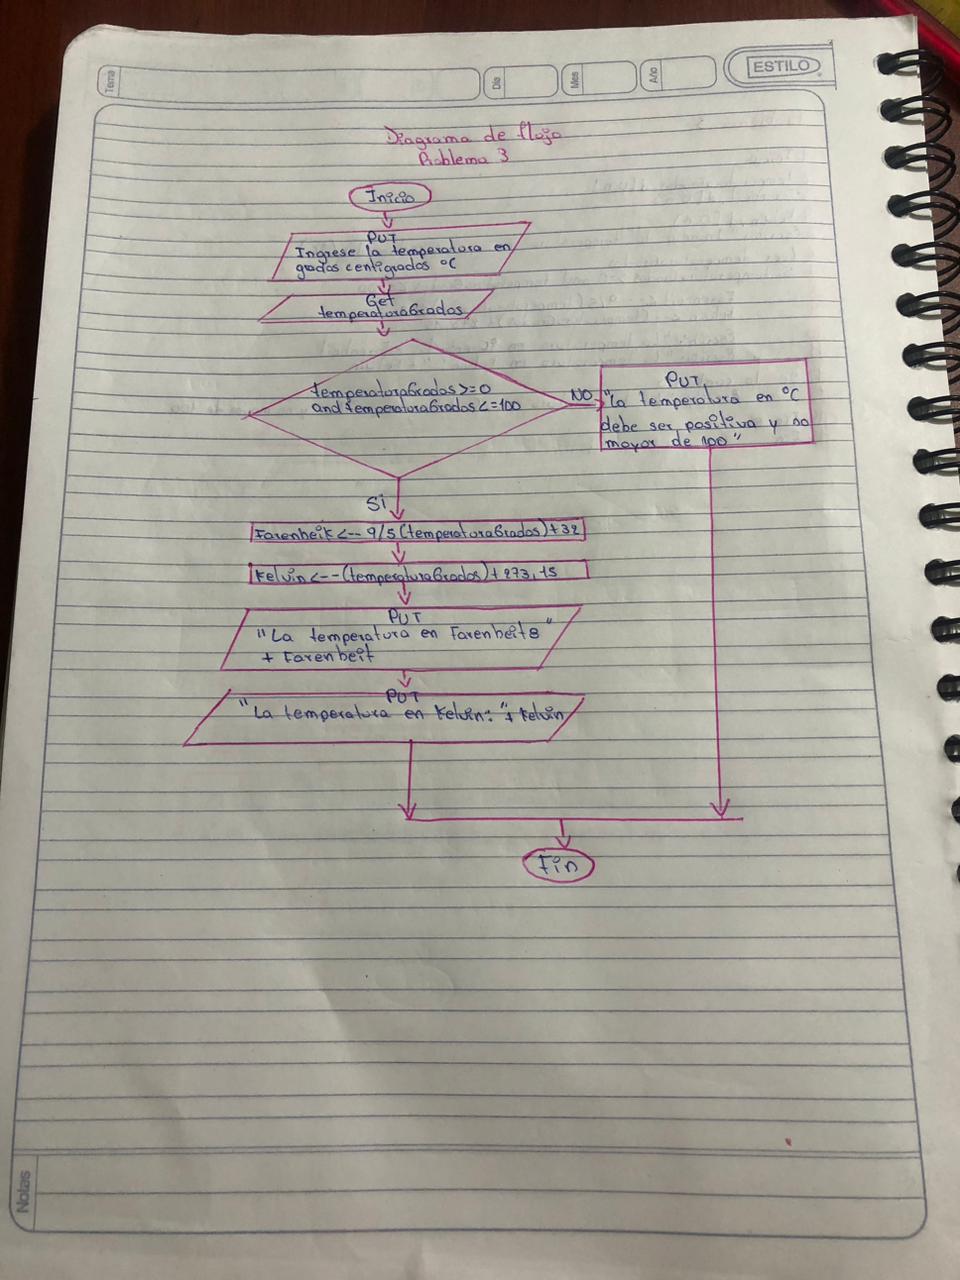 Tema
Día
Mes
Año
ESTILO
Diagrama de flujo
Problema 3
Inicio
PUT
Ingrese la temperatura en
grados centigrados °C
Get
temperaturaGrados
temperaturaGrados >=0
and temperaturaGrados <=100
NO
PUT
"La temperatura en °C
debe ser positiva y no
mayor de 100"
Si
Farenheit <-- 9/5(temperaturaGrados)+32
Kelvin <-- (temperaturaGrados)+273,15
PUT
"La temperatura en Farenheit: "
+ Farenheit
PUT
"La temperatura en Kelvin: "+ Kelvin
Fin
Notas